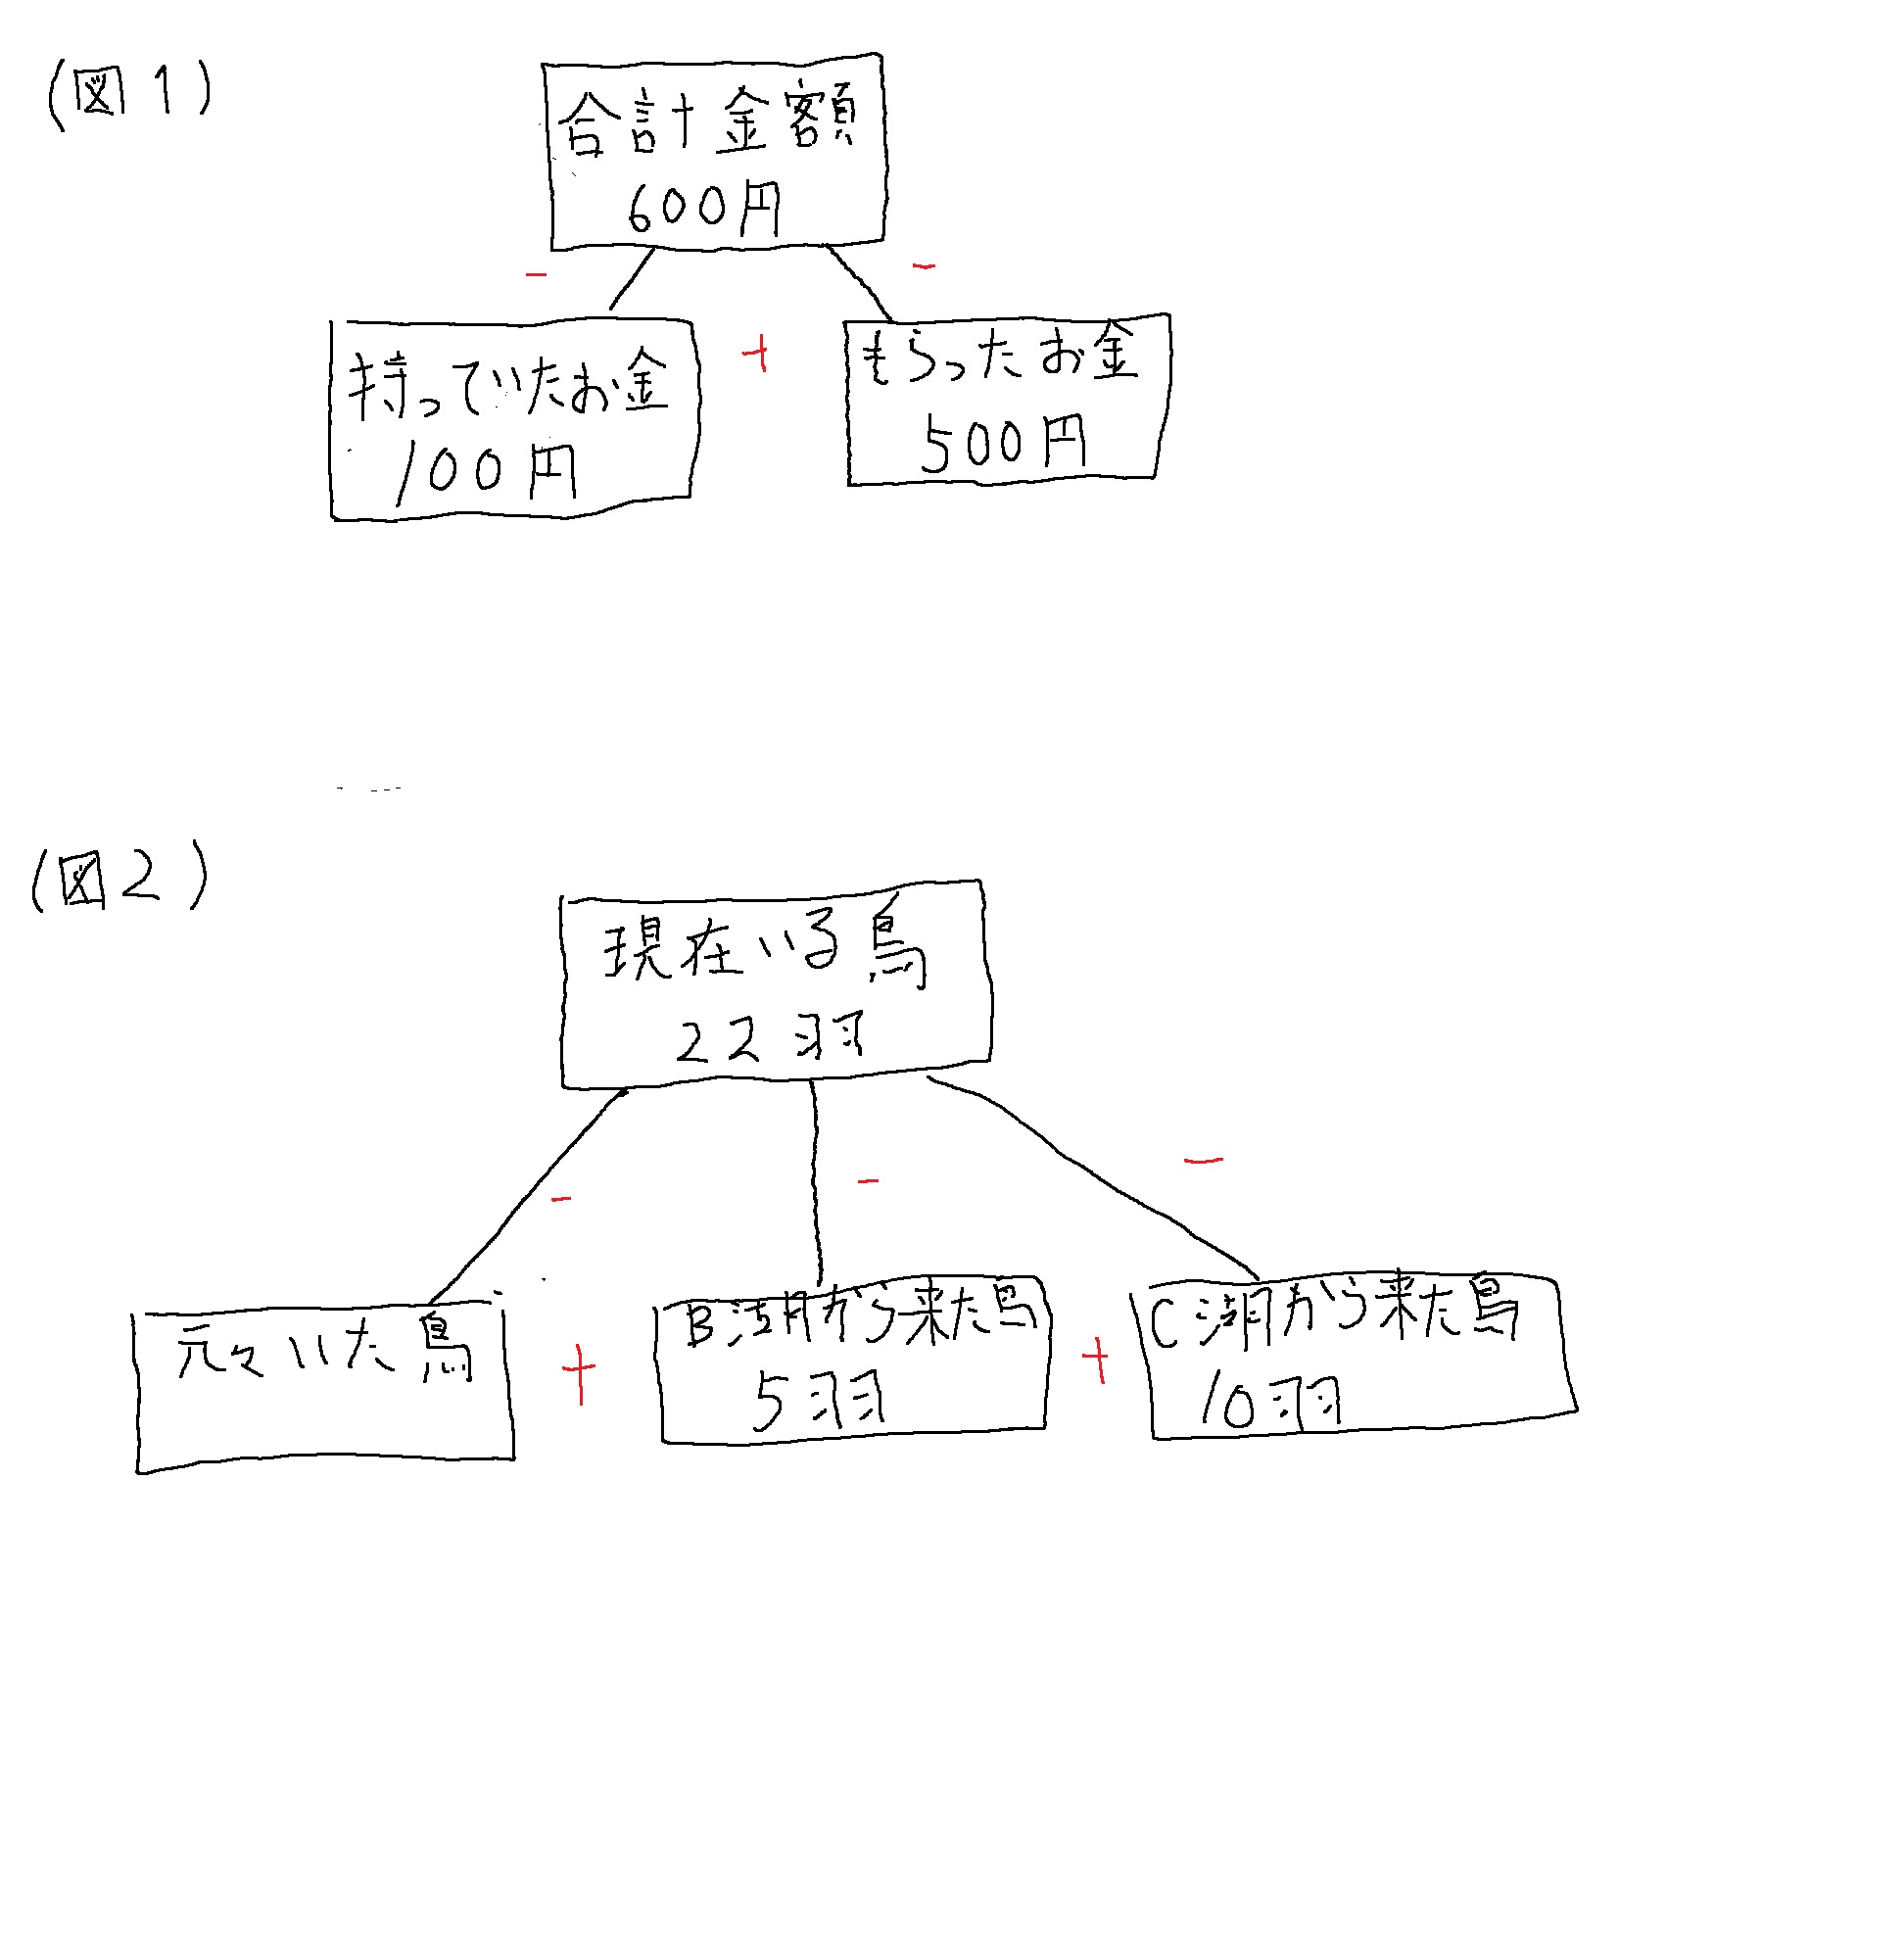 (図1)
合計金額
600円
-
-
持っていたお金
100円
+
もらったお金
500円
(図2)
現在いる鳥
22羽
-
-
-
元々いた鳥
+
B湖から来た鳥
5羽
+
C湖から来た鳥
10羽